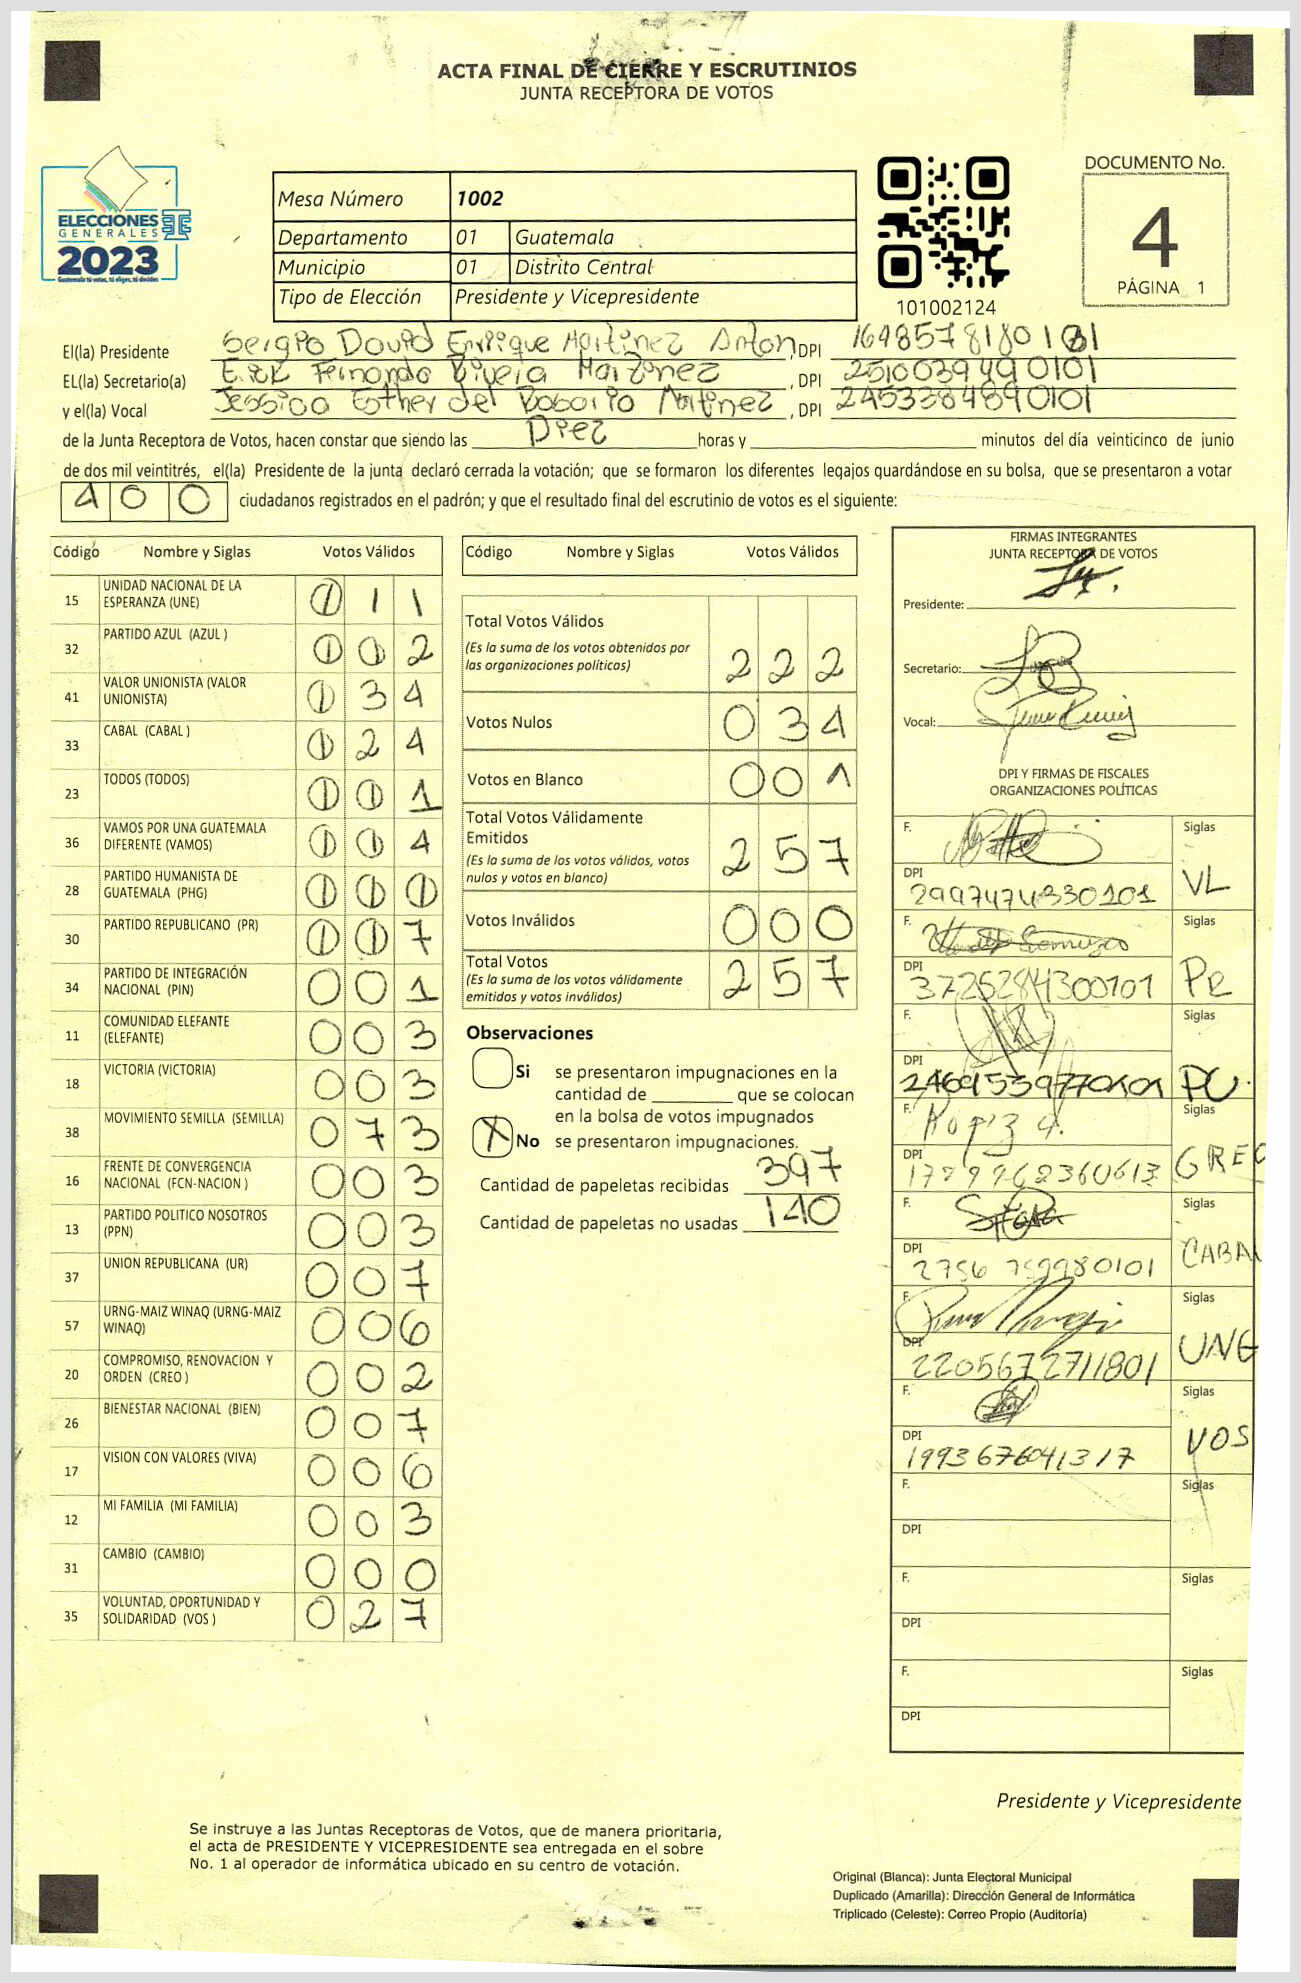 ACTA FINAL DE CIERRE Y ESCRUTINIOS
JUNTA RECEPTORA DE VOTOS
ELECCIONES
GENERALES
2023
Guatemala tú votas, tú eliges, tú decides
Mesa Número 1002
Departamento 01 Guatemala
Municipio 01 Distrito Central
Tipo de Elección Presidente y Vicepresidente
101002124
DOCUMENTO No.
4
PÁGINA 1
El(la) Presidente Sergio David Enrique Martinez Anton, DPI
EL(la) Secretario(a) Erik Fernando Rivera Martinez, DPI 2510039490101
y el(la) Vocal Jessica Esther del Rosario Martinez, DPI 2453384890101
de la Junta Receptora de Votos, hacen constar que siendo las Diez horas y minutos del día veinticinco de junio
de dos mil veintitrés, el(la) Presidente de la junta declaró cerrada la votación; que se formaron los diferentes legajos quardándose en su bolsa, que se presentaron a votar
400 ciudadanos registrados en el padrón; y que el resultado final del escrutinio de votos es el siguiente:
Código Nombre y Siglas Votos Válidos
15 UNIDAD NACIONAL DE LA ESPERANZA (UNE) 0 1 1
32 PARTIDO AZUL (AZUL ) 0 0 2
41 VALOR UNIONISTA (VALOR UNIONISTA) 0 3 4
33 CABAL (CABAL ) 0 2 4
23 TODOS (TODOS) 0 0 1
36 VAMOS POR UNA GUATEMALA DIFERENTE (VAMOS) 0 0 4
28 PARTIDO HUMANISTA DE GUATEMALA (PHG) 0 0 0
30 PARTIDO REPUBLICANO (PR) 0 0 7
34 PARTIDO DE INTEGRACIÓN NACIONAL (PIN) 0 0 1
11 COMUNIDAD ELEFANTE (ELEFANTE) 0 0 3
18 VICTORIA (VICTORIA) 0 0 3
38 MOVIMIENTO SEMILLA (SEMILLA) 0 7 3
16 FRENTE DE CONVERGENCIA NACIONAL (FCN-NACION ) 0 0 3
13 PARTIDO POLITICO NOSOTROS (PPN) 0 0 3
37 UNION REPUBLICANA (UR) 0 0 7
57 URNG-MAIZ WINAQ (URNG-MAIZ WINAQ) 0 0 6
20 COMPROMISO, RENOVACION Y ORDEN (CREO ) 0 0 2
26 BIENESTAR NACIONAL (BIEN) 0 0 7
17 VISION CON VALORES (VIVA) 0 0 6
12 MI FAMILIA (MI FAMILIA) 0 0 3
31 CAMBIO (CAMBIO) 0 0 0
35 VOLUNTAD, OPORTUNIDAD Y SOLIDARIDAD (VOS ) 0 2 7
Código Nombre y Siglas Votos Válidos
Total Votos Válidos
(Es la suma de los votos obtenidos por
las organizaciones políticas) 2 2 2
Votos Nulos 0 3 4
Votos en Blanco 0 0 1
Total Votos Válidamente
Emitidos
(Es la suma de los votos válidos, votos
nulos y votos en blanco) 2 5 7
Votos Inválidos 0 0 0
Total Votos
(Es la suma de los votos válidamente
emitidos y votos inválidos) 2 5 7
Observaciones
Si se presentaron impugnaciones en la
cantidad de que se colocan
en la bolsa de votos impugnados
X No se presentaron impugnaciones.
Cantidad de papeletas recibidas 397
Cantidad de papeletas no usadas 140
FIRMAS INTEGRANTES
JUNTA RECEPTORA DE VOTOS
Presidente:
Secretario:
Vocal:
DPI Y FIRMAS DE FISCALES
ORGANIZACIONES POLÍTICAS
F. Siglas
DPI 2997474330101 VL
F. Siglas
DPI 3725284300101 PR
F. Siglas
DPI 2469539770101 PU
F. Siglas
DPI 1779962360613 CREO
F. Siglas
DPI CABAL
F. Siglas
DPI 2205672711801 UNE
F. Siglas
DPI 1993676041317 VOS
F. Siglas
DPI
F. Siglas
DPI
F. Siglas
DPI
Presidente y Vicepresidente
Se instruye a las Juntas Receptoras de Votos, que de manera prioritaria,
el acta de PRESIDENTE Y VICEPRESIDENTE sea entregada en el sobre
No. 1 al operador de informática ubicado en su centro de votación.
Original (Blanca): Junta Electoral Municipal
Duplicado (Amarilla): Dirección General de Informática
Triplicado (Celeste): Correo Propio (Auditoría)